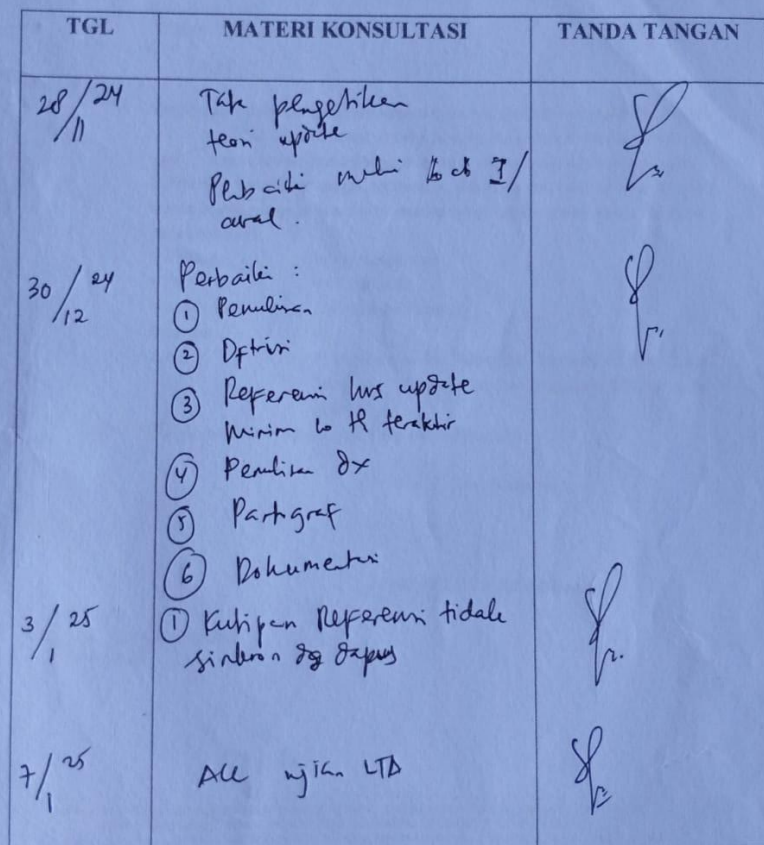 TGL MATERI KONSULTASI TANDA TANGAN
28/11 24 pengetikan
teori update
bab I/
awal.
30/12 24 Perbaiki :
① Penulisan
②
③ Referensi hrs update
10 th terakhir
④ Penulisan dx
⑤ Partograf
⑥ Dokumentasi
3/1 25 ① Kutipan Referensi tidak
sinkron dg dapus
7/1 25 ACC ujian LTA